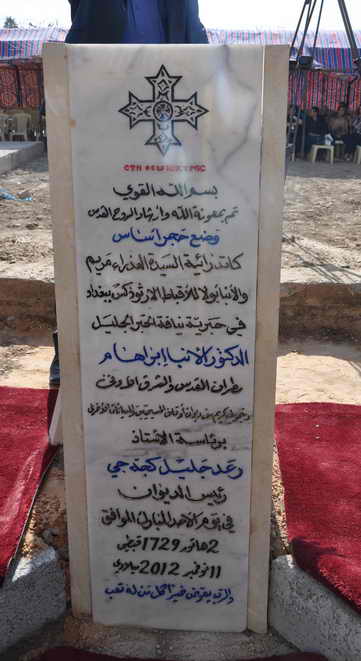 بسم الله القوي
تم بمعونة الله وإرشاد الروح القدس
وضع حجر أساس
كاتدرائية السيدة العذراء مريم
والأنبا بولا للأقباط الأرثوذكس ببغداد
في حبرية نيافة الحبر الجليل
الدكتور الأنبا ابراهام
مطران القدس والشرق الأدنى
برئاسة الأستاذ
رعد جليل كجه جي
رئيس الديوان
في يوم الأحد المبارك الموافق
2 هاتور 1729 قبطي
11 نوفمبر 2012 ميلادي
والرب يعوض خيراً كل من له تعب